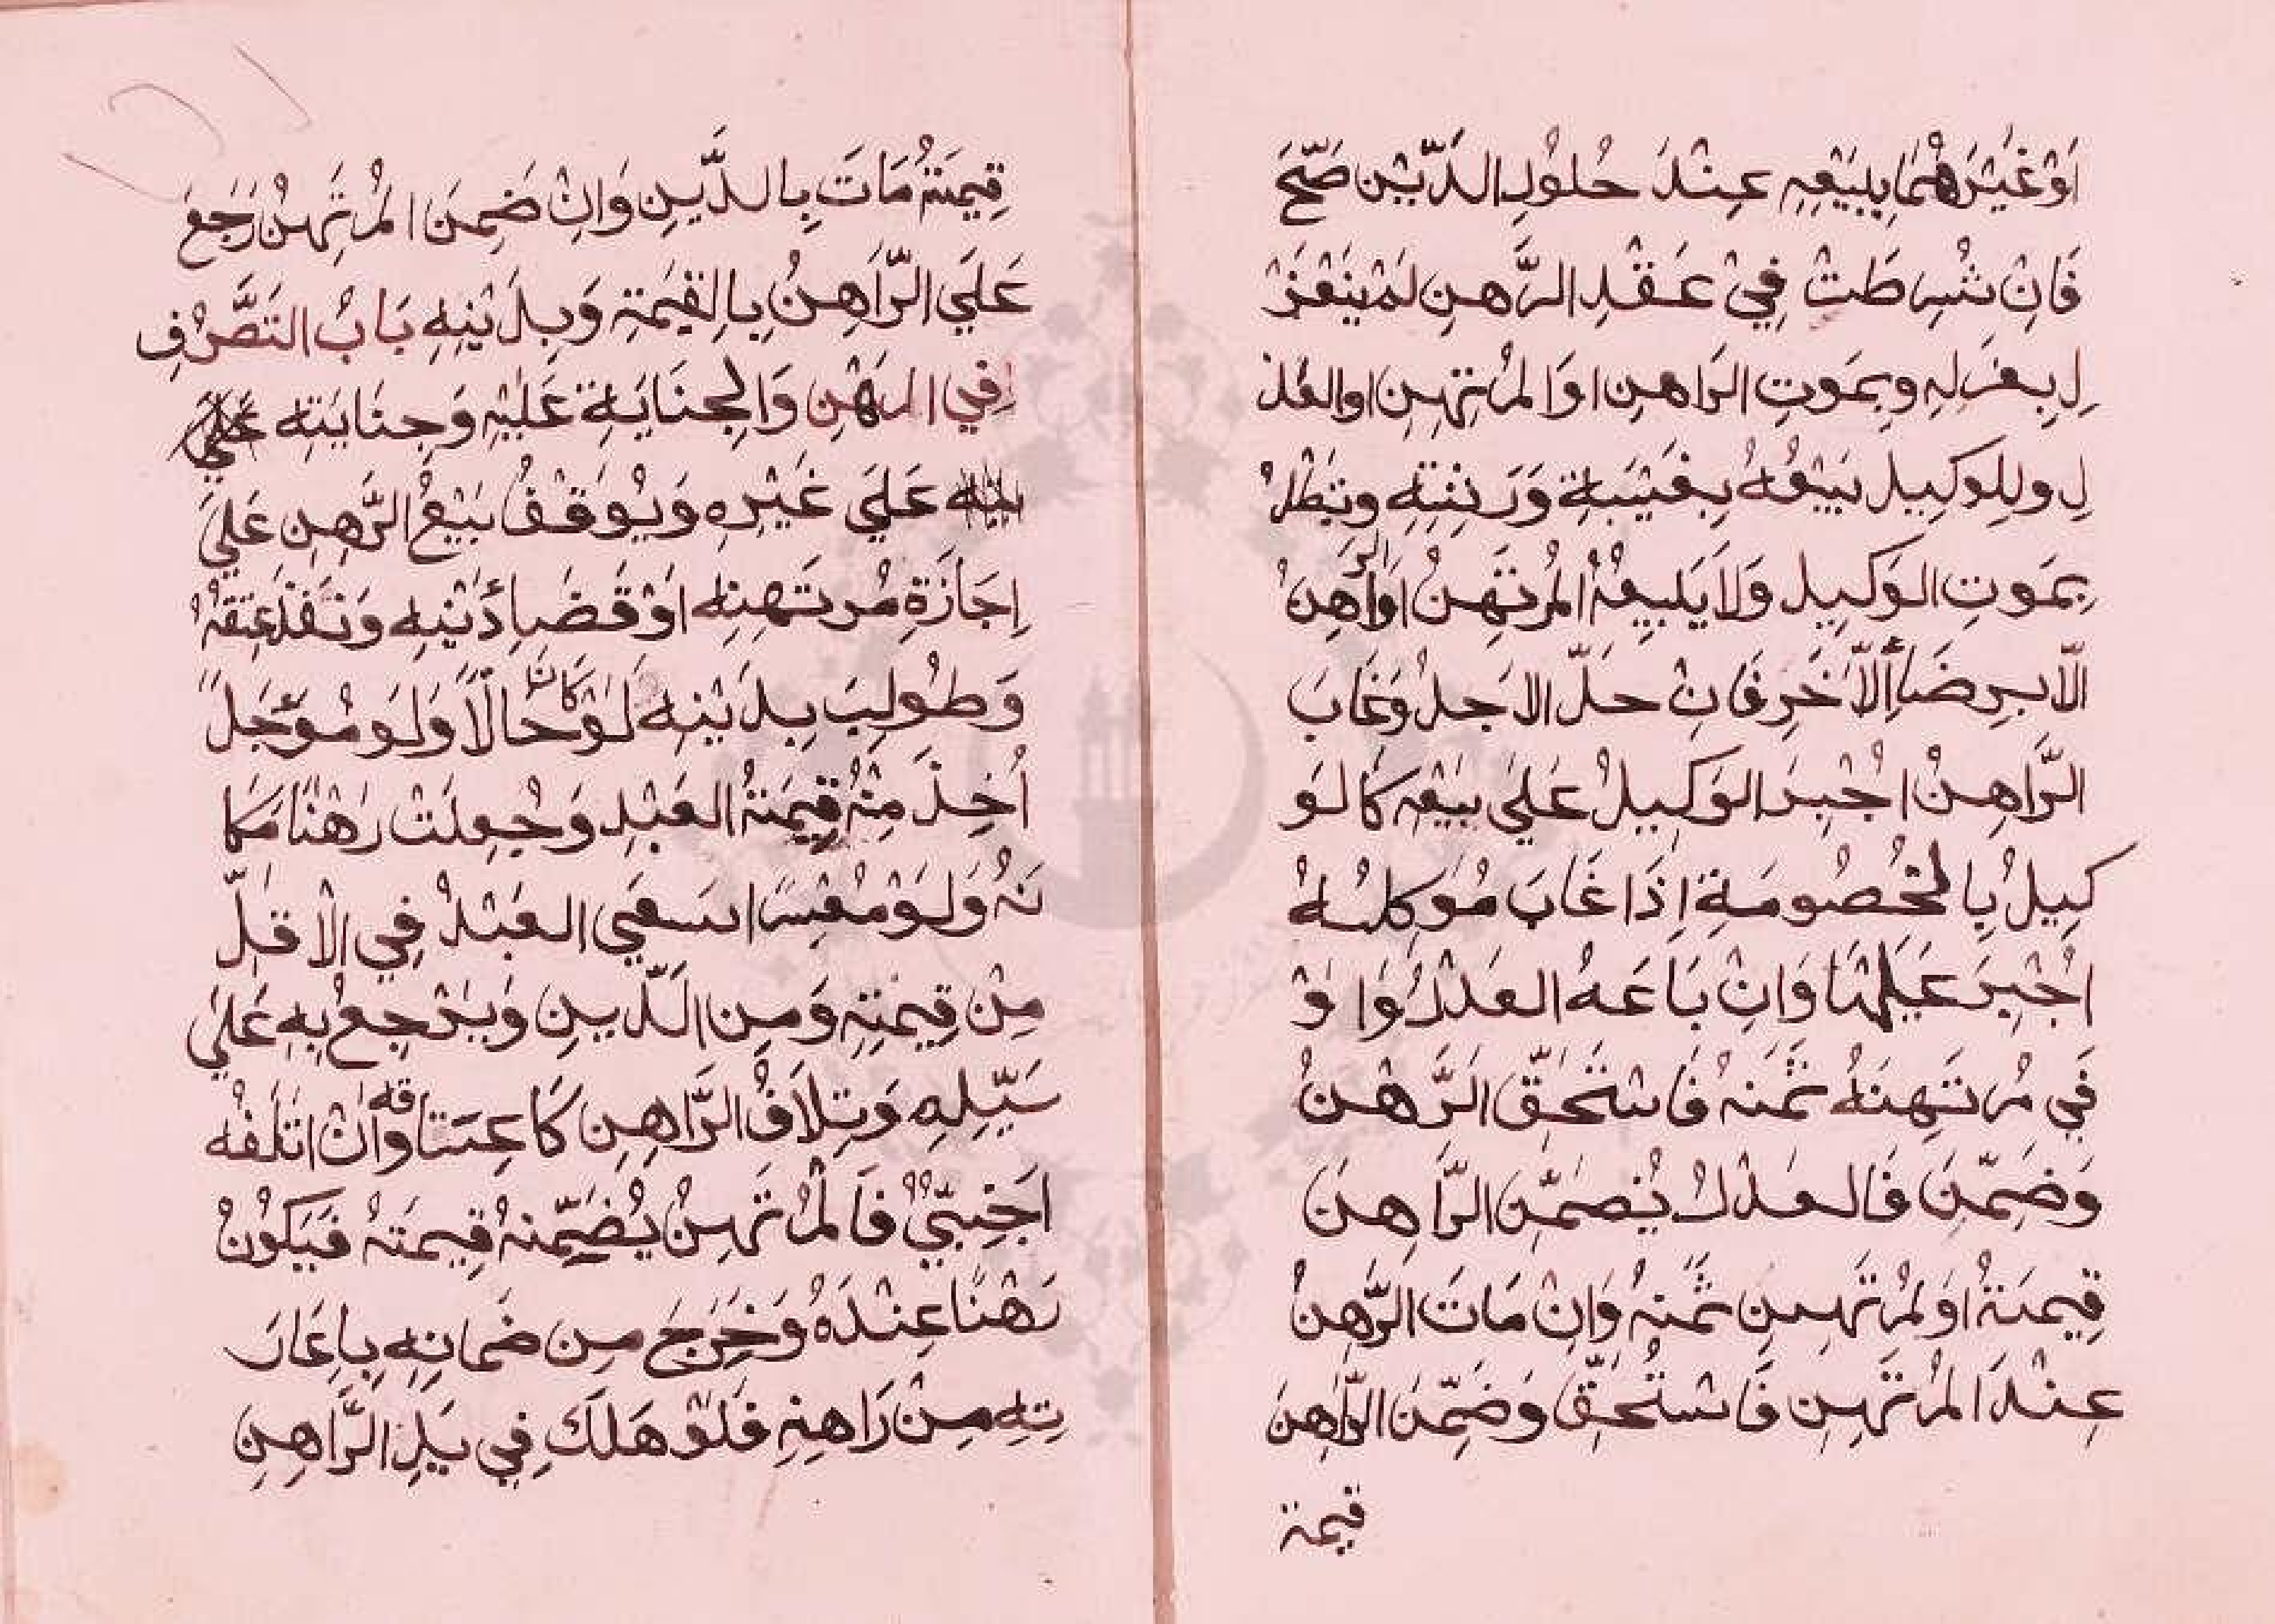 اَوْغَيْرَهُمَا بِبَيْعِهِ عِنْدَ حُلُولِ الدَّيْنِ صَحَّ
فَانِ شُرِطَتْ فِيْ عَقْدِ الرَّهنِ لَمْ يَنْعَزْ
لِ بِعَزلِهِ وبِمَوتِ الرَاهنِ اوَالمُرتَهِنِ اوالعَدْ
لِ ولِلوكِيل بَيْعُهُ بِغَيْبَةِ وَرَثِتِهِ وتَبْطُلُ
بِمَوتِ الوَكِيل وَلاَ يَلبِيعُهُ المُرتَهِنُ اوَالرَّاهِنُ
الّا بِرِضَاءِ الاَّخَرِ فَانِْ حلَّ الاَجلُ وَغَابَ
الرَّاهِنُ اجْبِرَ الوَكِيلُ عَلىَ بَيْعِهِ كَالوَ
كِيلُ بِالخُصُومَةِ اِذَا غَابَ مُوَكِلُهُ
اجْبِرَ عَلَيْهَا وَانِْ بَاعَهُ العَدْلُ وَاوْ
فَي مُرتَهِنَهُ ثَمَنَهُ فَاستَحَقَّ الرَّهْنُ
وَضَمِّنَ فَالعَدْلُ يُضَمِّنَ الرَّاهِنَ
قِيمَتهُ اوَلمُرتَهِينِ ثَمَنَهُ وَانِْ مَاتَ الرَّهِنُ
عِنْدَ المُرتَهِنِ فَاسْتُحِقَّ وَضَمِّنَ الرَّاهِنَ
قيمة
قِيمَتَهُ مَاتَ بِالدَّينِ وَانِْ ضَمِنَ المُرتَهِنُ رَجَعَ
عَلَي الرَّاهِنُ بِالقِيمَةِ وَبِدَيْنِهِ بَابُ التَصَّرُفِ
فِي الرهْنِ وَالجِنَايَةِ عَلَيْهِ وَجِنَايَتِه
عَلَي غَيْرِهِ وَيُوقَفُ بَيْعُ الرَّهِنِ عَلَيَ
اِجَازَةِ مُرتَهِنِه اوَْقَضَاِءدَيْنِهِ وَنَفَذَ عِتقَهُ
وَطُولِبَ بِدَيْنِهِ لَوْكَانَ حَالاًّ وَلَو مُؤَجَلاً
اُخِذَ مِنْهُ قِيمَةُ العَبْدِ وَجُعِلَتْ رَهْنًا مَكَا
نَهُ وَلَوْ مُعْسِرًا سَعَي العَبْدُ فِي الاْقلِّ
مِنْ قِيمَتِهِ وَمِنِ الدَّينِ وَيَرْجِعُ بِهِ عَلىَ
سَيِّلِهِ وَتِلاَفُ الرَّاهِنِ كَاعِتَاقه وَانْ اتلَفَهُ
اجَنبِيٌّ فَالمُرتَهِنُ يُضَمِّنهُ قِيمَتَهُ فَيَكُونُ
رَهْنًا عِنْدَهُ وَخَرَجَ مِن ضَمانِهِ بِاِعَارَ
تِهِ مِنْ رَاهِنِهِ فَلَوْ هَلَكَ فِي يَدِ الرَّاهِنِ